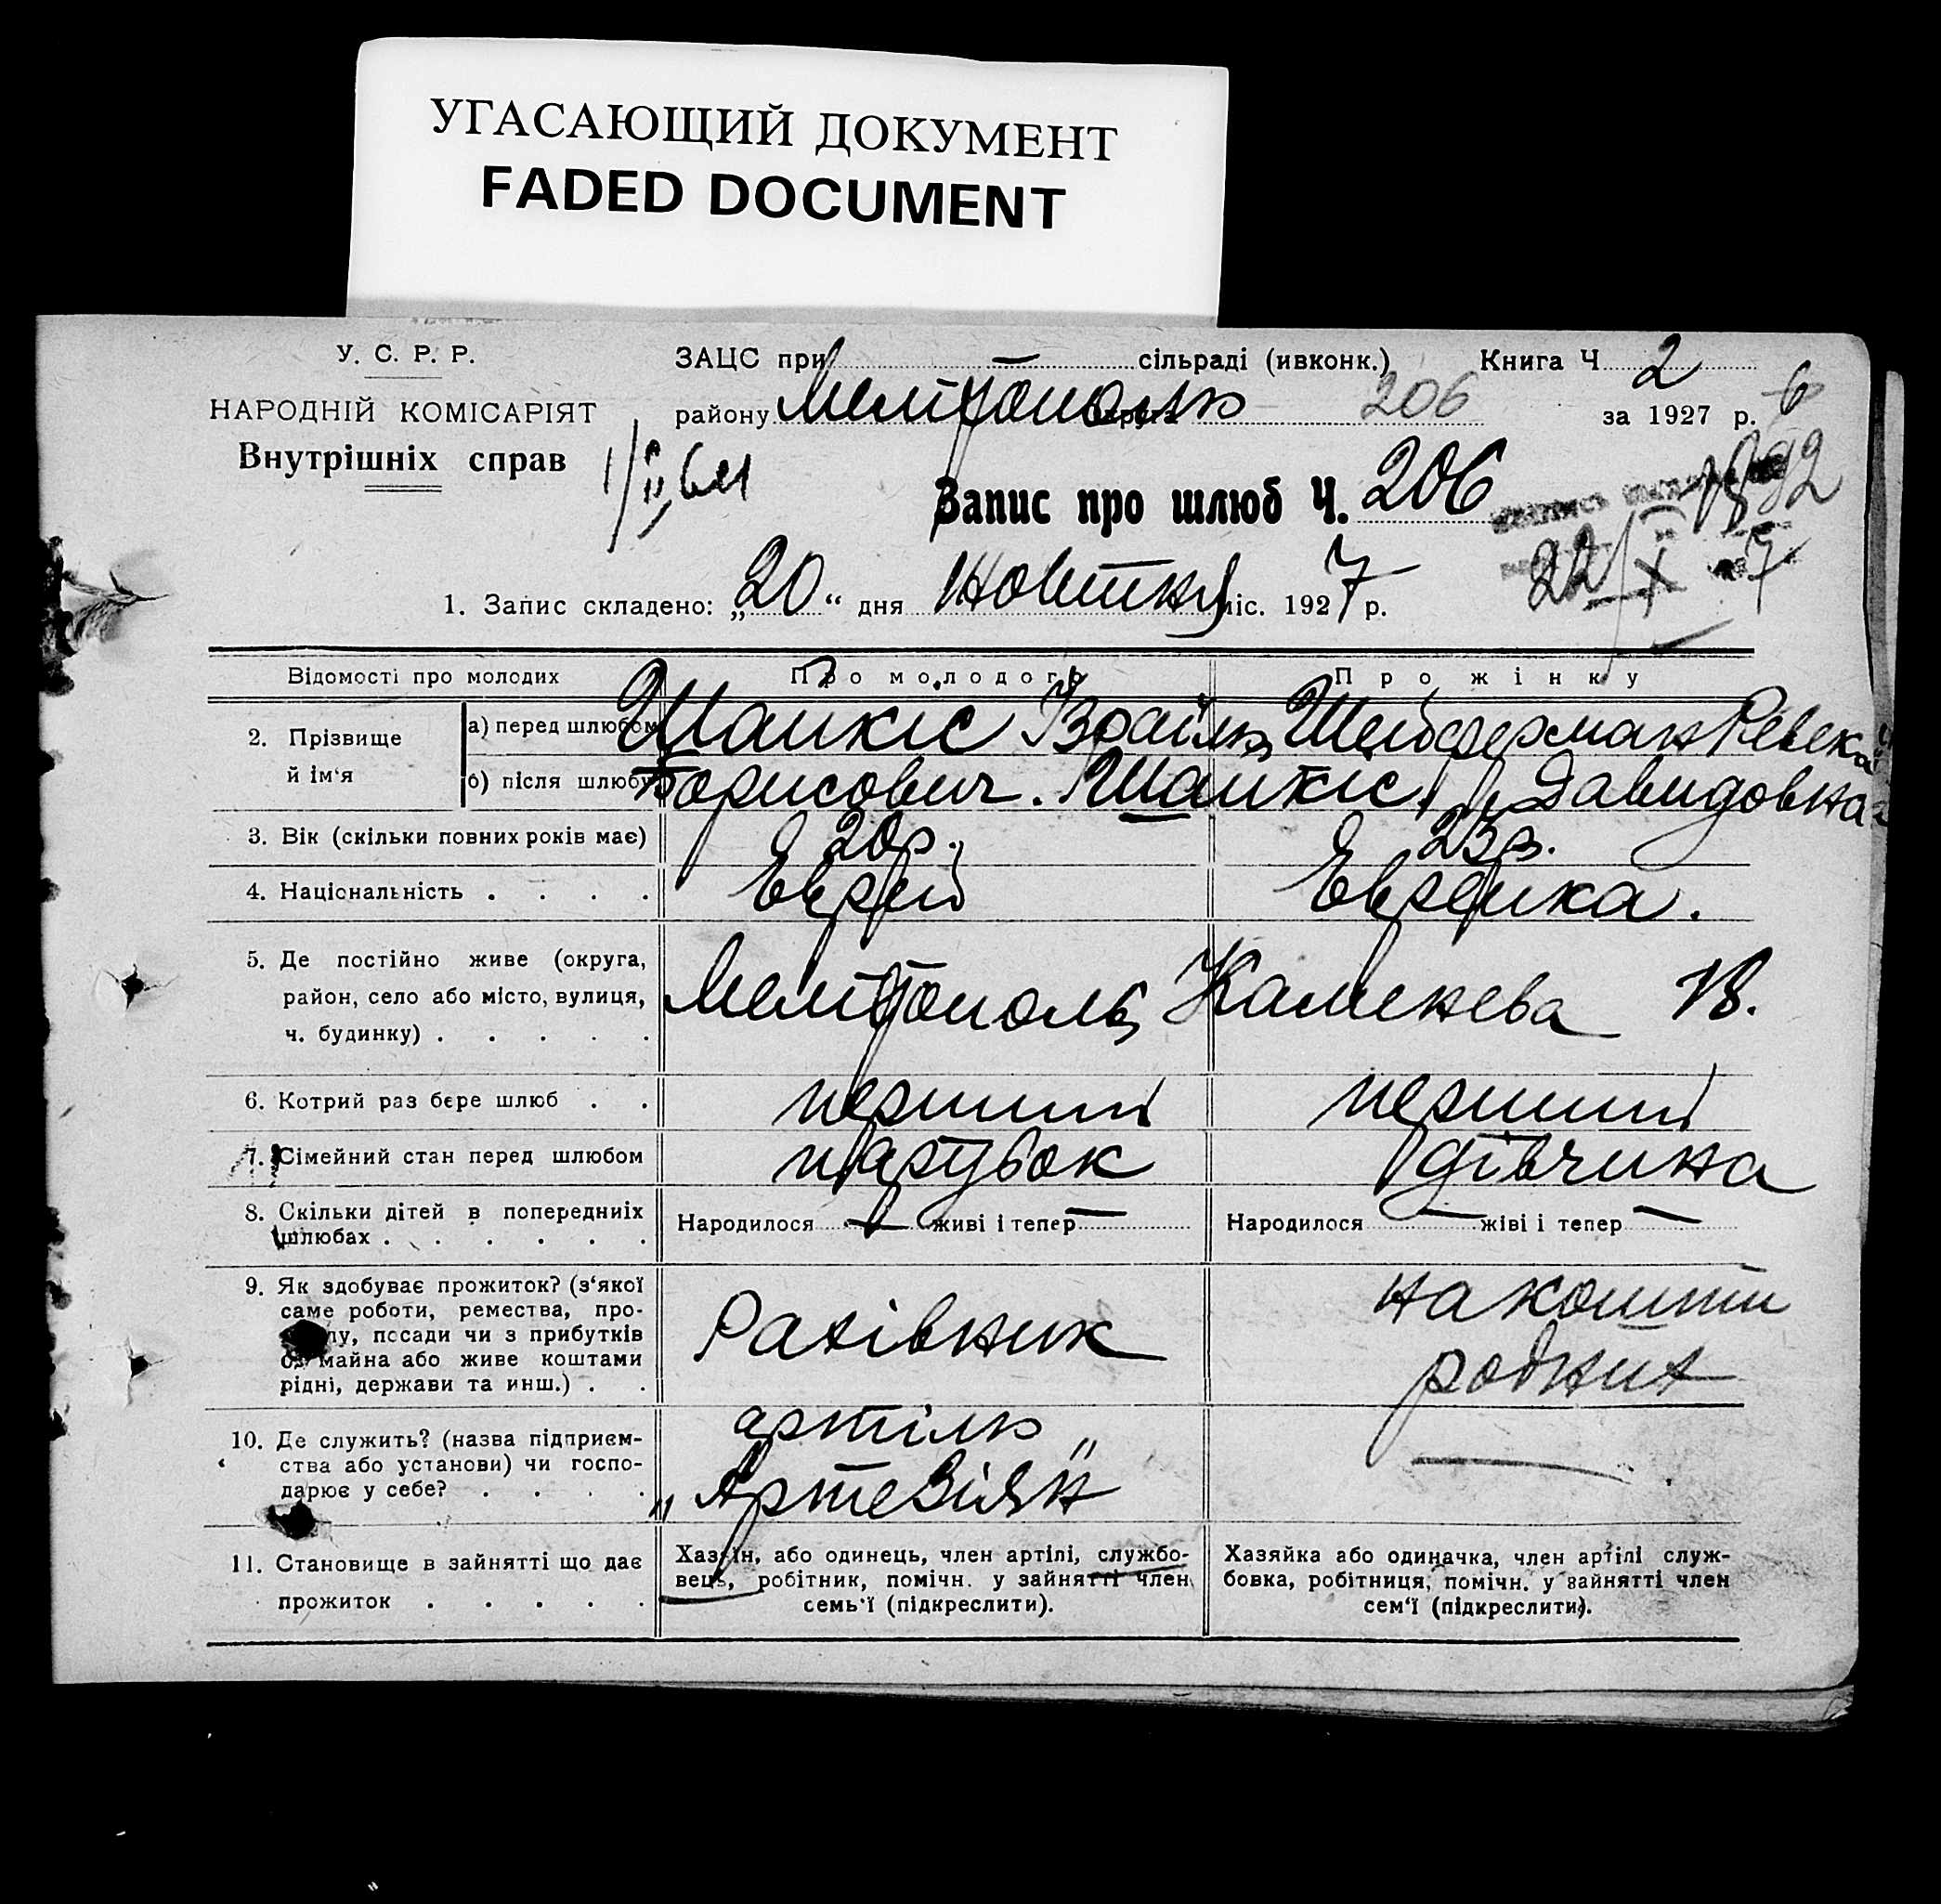 УГАСАЮЩИЙ ДОКУМЕНТ
FADED DOCUMENT
У. С. Р. Р.
НАРОДНІЙ КОМІСАРІЯТ
Внутрішніх справ
ЗАЦС при — сільраді (ивконк.) Книга Ч 2
району Мелітополь 206 за 1927 р. 6
Запис про шлюб Ч. 206
22/X 7
1. Запис складено: „20“ дня Жовтня міс. 1927 р.
Відомості про молодих Про молодого Про жінку
2. Прізвище й ім‘я
а) перед шлюбом Шапкіс Ізраїль Шейферман Ревека
б) після шлюбу Борисович. Шапкіс. Давидовна
3. Вік (скільки повних років має) 20р. 23р.
4. Національність . . . . Еврей Еврейка.
5. Де постійно живе (округа,
район, село або місто, вулиця,
ч. будинку) . . . . . Мелітополь, Каменева 18.
6. Котрий раз бере шлюб . . перший перший
7. Сімейний стан перед шлюбом парубок дівчина
8. Скільки дітей в попередниіх
шлюбах . . . . . . Народилося — живі і тепер — Народилося — жіві і тепер —
9. Як здобуває прожиток? (з‘якої
саме роботи, ремества, про-
лу, посади чи з прибутків
майна або живе коштами
рідні, держави та инш.) . .
Рахівник
на кошти
родних
10. Де служить? (назва підприєм-
ства або установи) чи госпо-
дарює у себе? . . . .
артіль
„Артевіян"
—
11. Становище в зайнятті що дає
прожиток . . . . .
Хазяїн, або одинець, член артілі, службо-
вець, робітник, помічн. у зайнятті член
семь‘ї (підкреслити).
Хазяйка або одиначка, член артілі служ-
бовка, робітниця, помічн. у зайнятті член
сем‘ї (підкреслити).